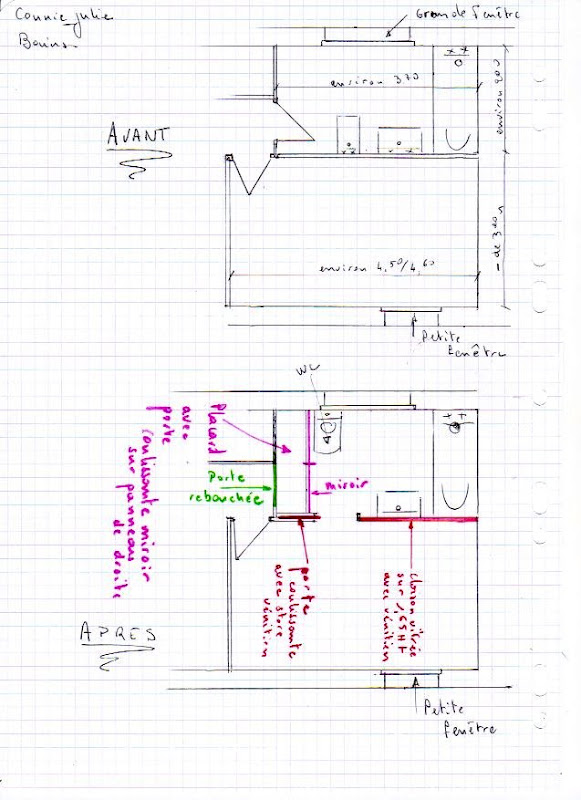 Connie-Julie
Bains.
Grande fenêtre
environ 3.70
environ 200
AVANT
environ 4,50/4,60
- de 300
Petite
fenêtre
WC
Placard
avec
porte
coulissante miroir
sur panneau
de droite
Porte
rebouchée
miroir
porte
coulissante
avec store
vénitien
cloison vitrée
sur 1,65 HT
avec vénitien
APRES
Petite
fenêtre